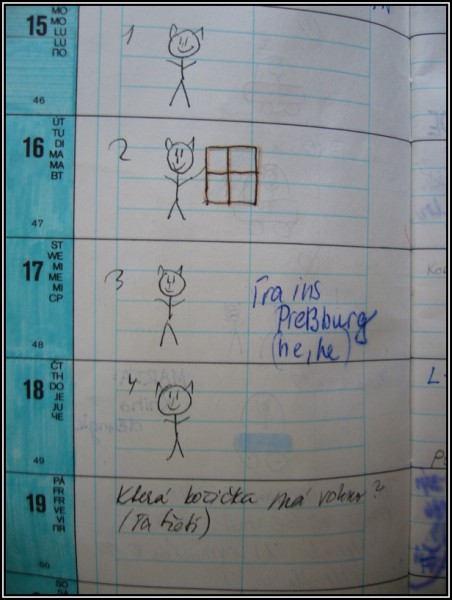 15
MO
MO
LU
LU
ПО
46
1
16
ÚT
TU
DI
MA
MA
BT
47
2
17
ST
WE
MI
ME
MI
CP
48
3
Trains
Preßburg
(he, he)
18
ČT
TH
DO
JE
JU
ЧЕ
49
4
19
PÁ
FR
FR
VE
VE
50
Která kočička má vokno?
(Ta třetí)
SO
SA